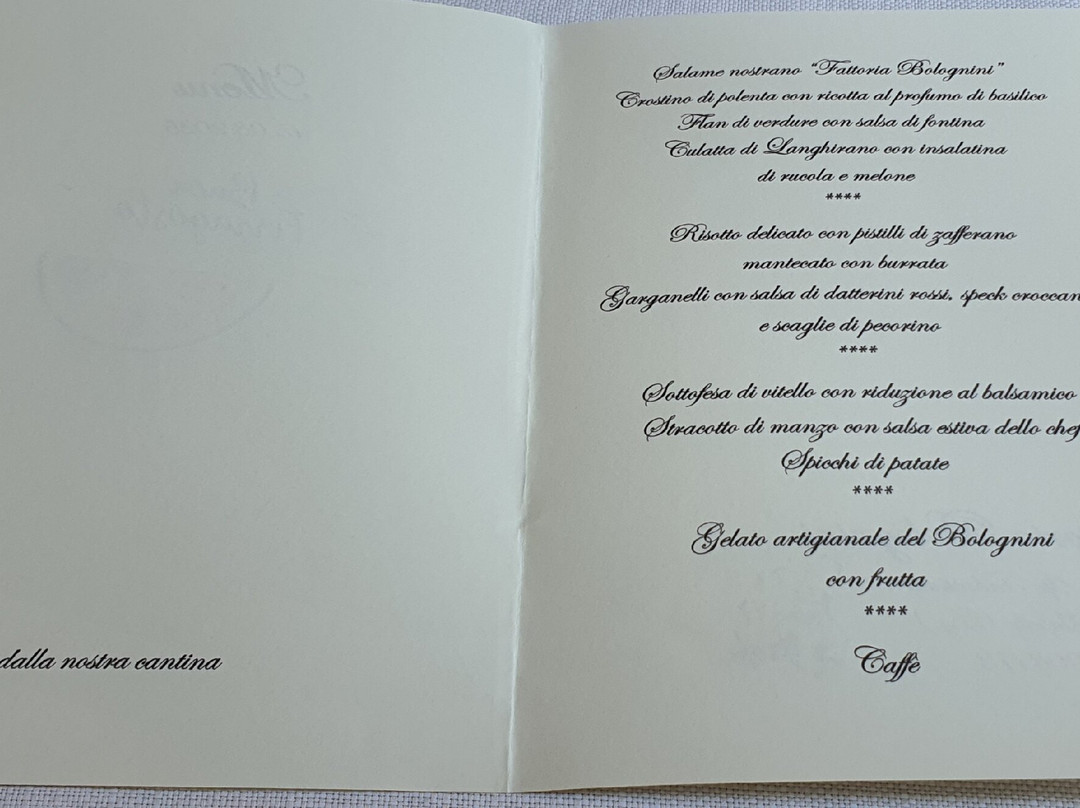 dalla nostra cantina
Salame nostrano “Fattoria Bolognini”
Crostino di polenta con ricotta al profumo di basilico
Flan di verdure con salsa di fontina
Culatta di Langhirano con insalatina
di rucola e melone
****
Risotto delicato con pistilli di zafferano
mantecato con burrata
Garganelli con salsa di datterini rossi, speck croccan
e scaglie di pecorino
****
Sottofesa di vitello con riduzione al balsamico
Stracotto di manzo con salsa estiva dello chef
Spicchi di patate
****
Gelato artigianale del Bolognini
con frutta
****
Caffè